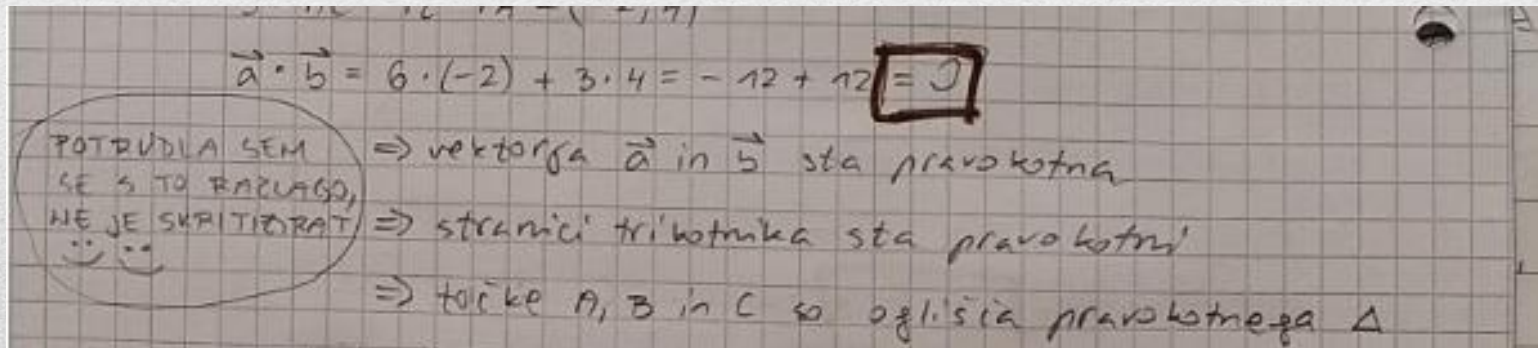 a⃗ · b⃗ = 6 · (-2) + 3 · 4 = - 12 + 12 = 0
POTRUDILA SEM
SE S TO RAZLAGO,
NE JE SKRITIZIRAT
⇒ vektorja a⃗ in b⃗ sta pravokotna
⇒ stranici trikotnika sta pravokotni
⇒ točke A, B in C so oglišča pravokotnega Δ